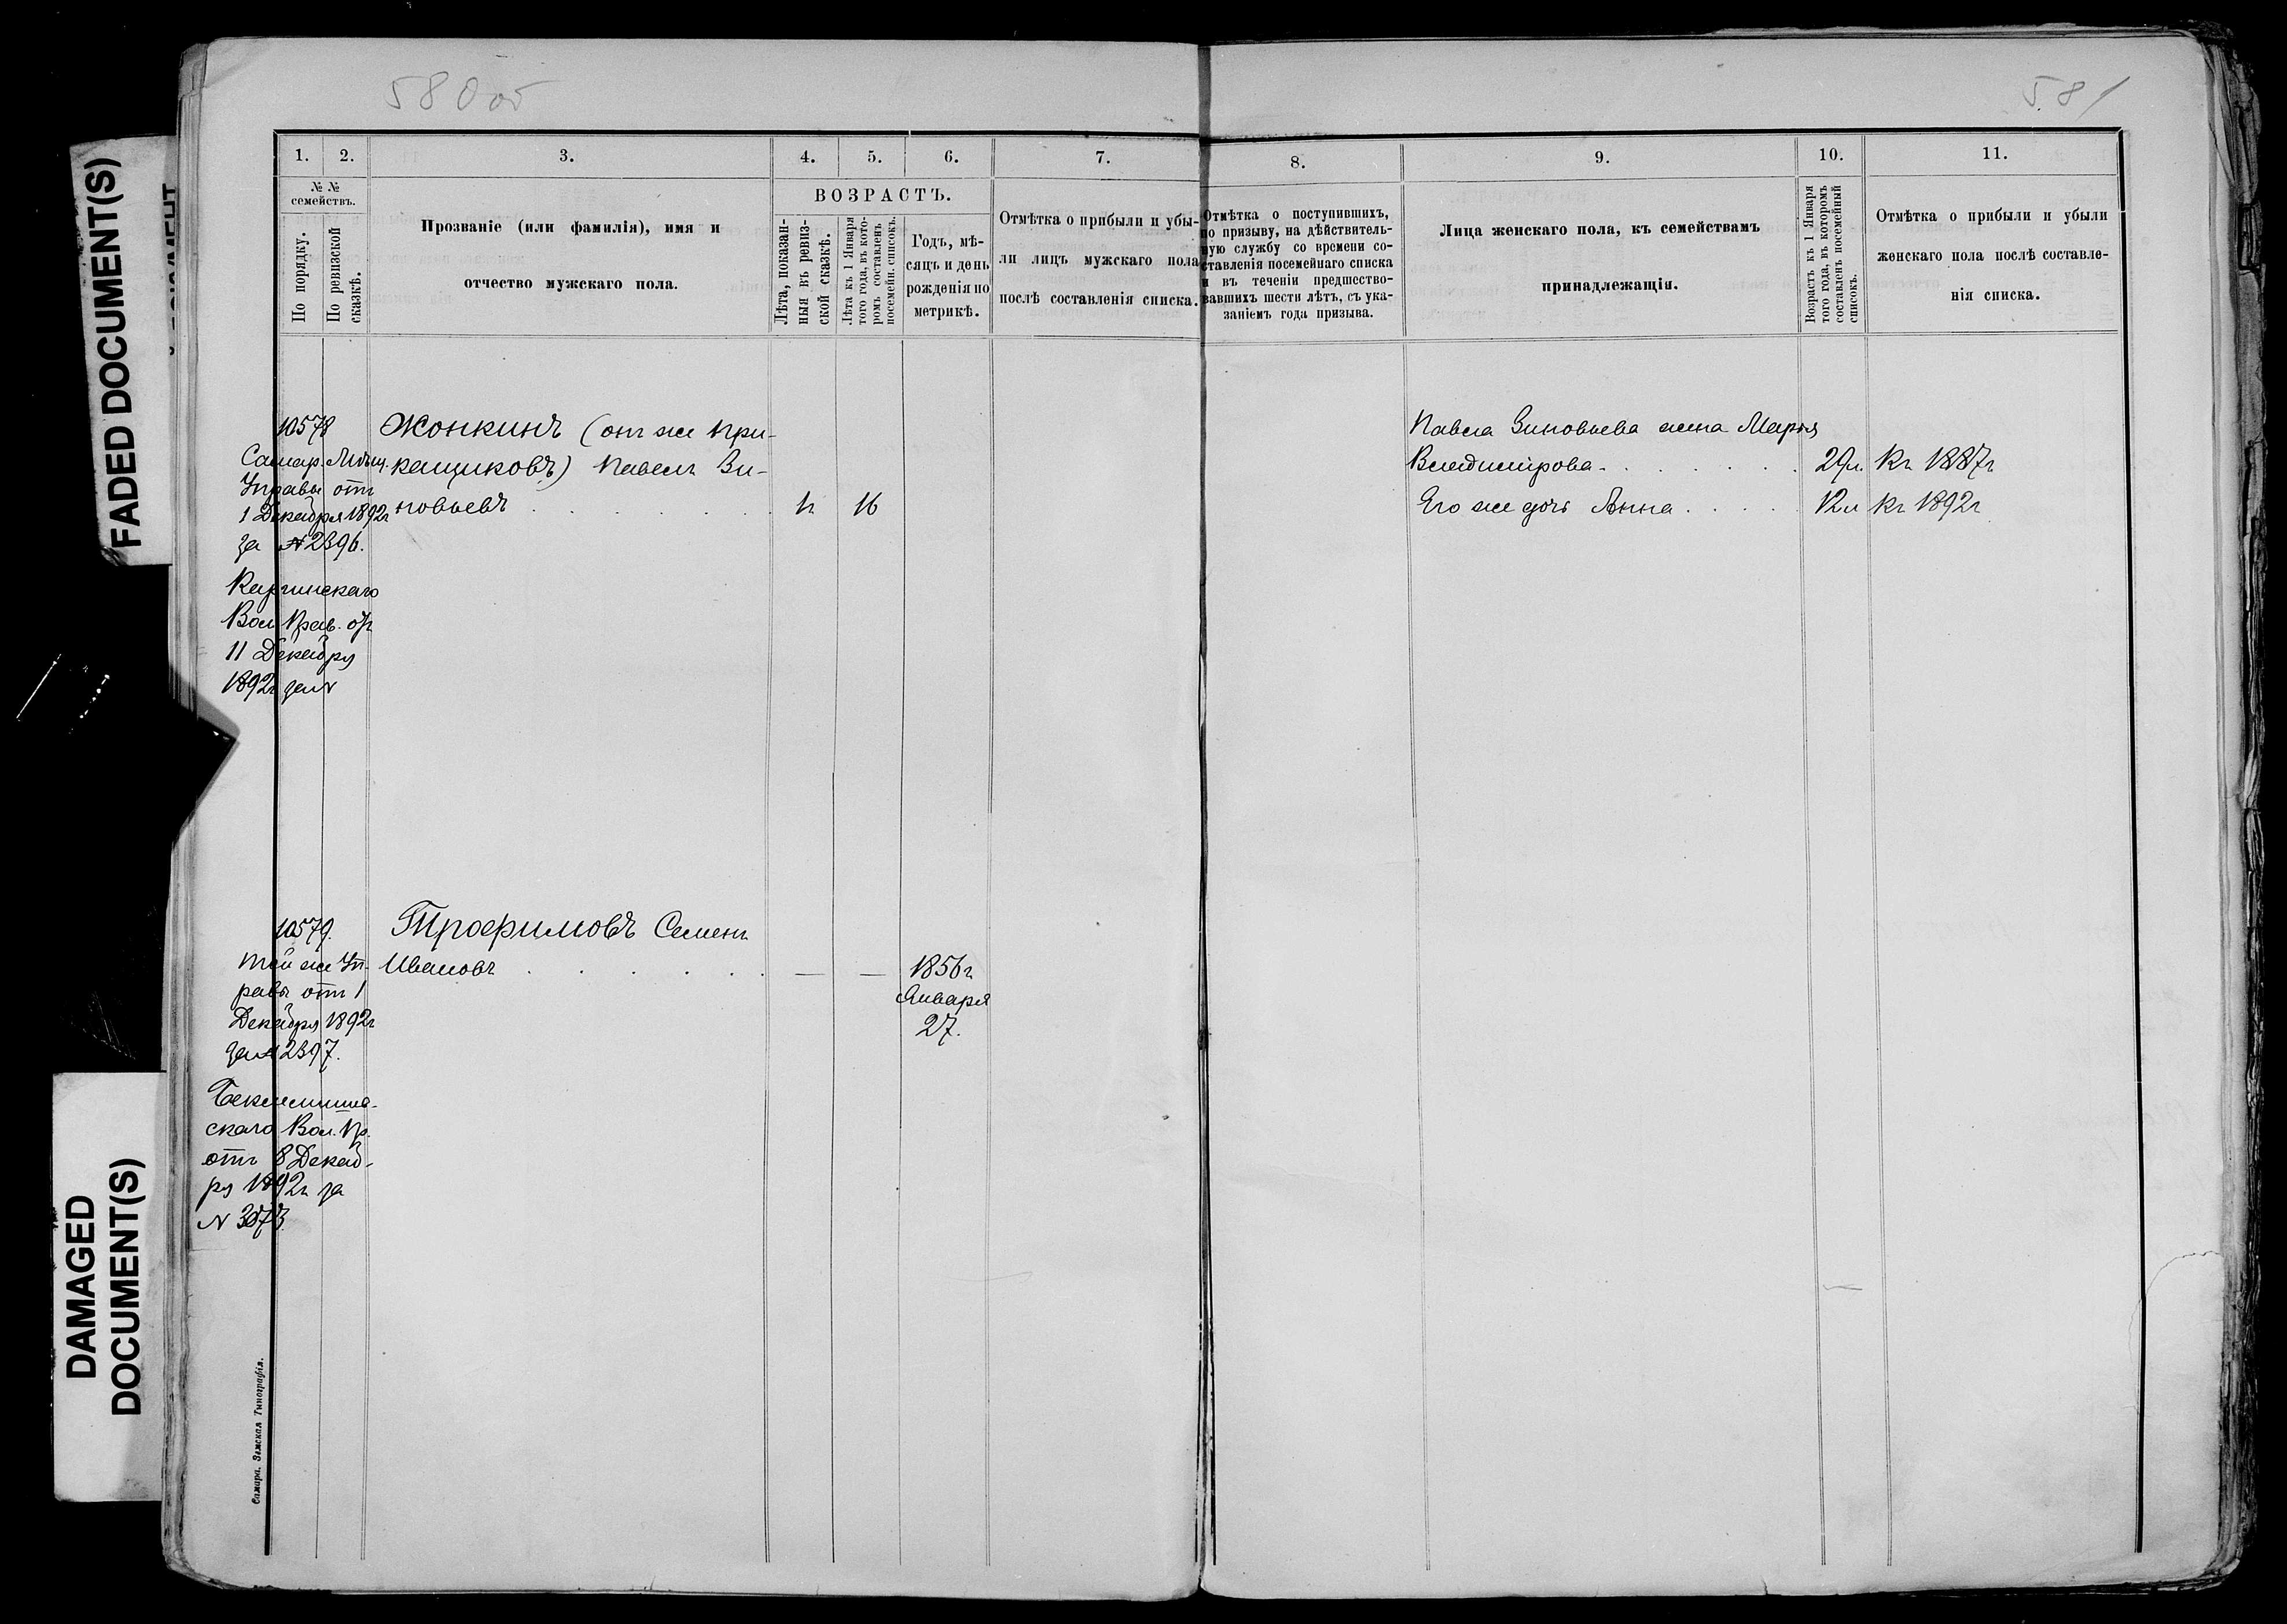 580об
581
FADED DOCUMENT(S)
DAMAGED
DOCUMENT(S)
1.
2.
3.
4.
5.
6.
7.
8.
9.
10.
11.
№ №
семействъ.
По порядку.
По ревизской
сказкѣ.
Прозваніе (или фамилія), имя и
отчество мужскаго пола.
ВОЗРАСТЪ.
Лѣта, показан-
ныя въ ревиз-
ской сказкѣ.
Лѣта къ 1 Января
того года, въ кото-
ромъ составленъ
посемейн. списокъ.
Годъ, мѣ-
сяцъ и день
рожденія по
метрикѣ.
Отмѣтка о прибыли и убы-
ли лицъ мужскаго пола
послѣ составленія списка.
Отмѣтка о поступившихъ,
по призыву, на дѣйствитель-
ную службу со времени со-
ставленія посемейнаго списка
и въ теченіи предшество-
вавшихъ шести лѣтъ, съ ука-
заніемъ года призыва.
Лица женскаго пола, къ семействамъ
принадлежащія.
Возрастъ къ 1 Января
того года, въ которомъ
составленъ посемейный
списокъ.
Отмѣтка о прибыли и убыли
женскаго пола послѣ составле-
нія списка.
10578
Самар. Мѣщ.
Управы отъ
1 Декабря 1892г
за № 2396.
Вол. Прав. отъ
11 Декабря
1892г за №
Жонкинъ (онъ же При-
кащиковъ) Павелъ Зи-
новьевъ . . . . . . . 16
Павла Зиновьева жена Марья
Владимірова. . . . . . . 29л. Къ 1887г
Его же дочь Анна . . . . . 12л Къ 1892г
10579.
той же Уп-
равы отъ 1
Декабря 1892г
за № 2397.
скаго Вол. Пр.
отъ 8 Декаб-
ря 1892г за
№ 3073.
Трофимовъ Семенъ
Ивановъ . . . . . . — —
1856г
Января
27.
Самара. Земская Типографія.